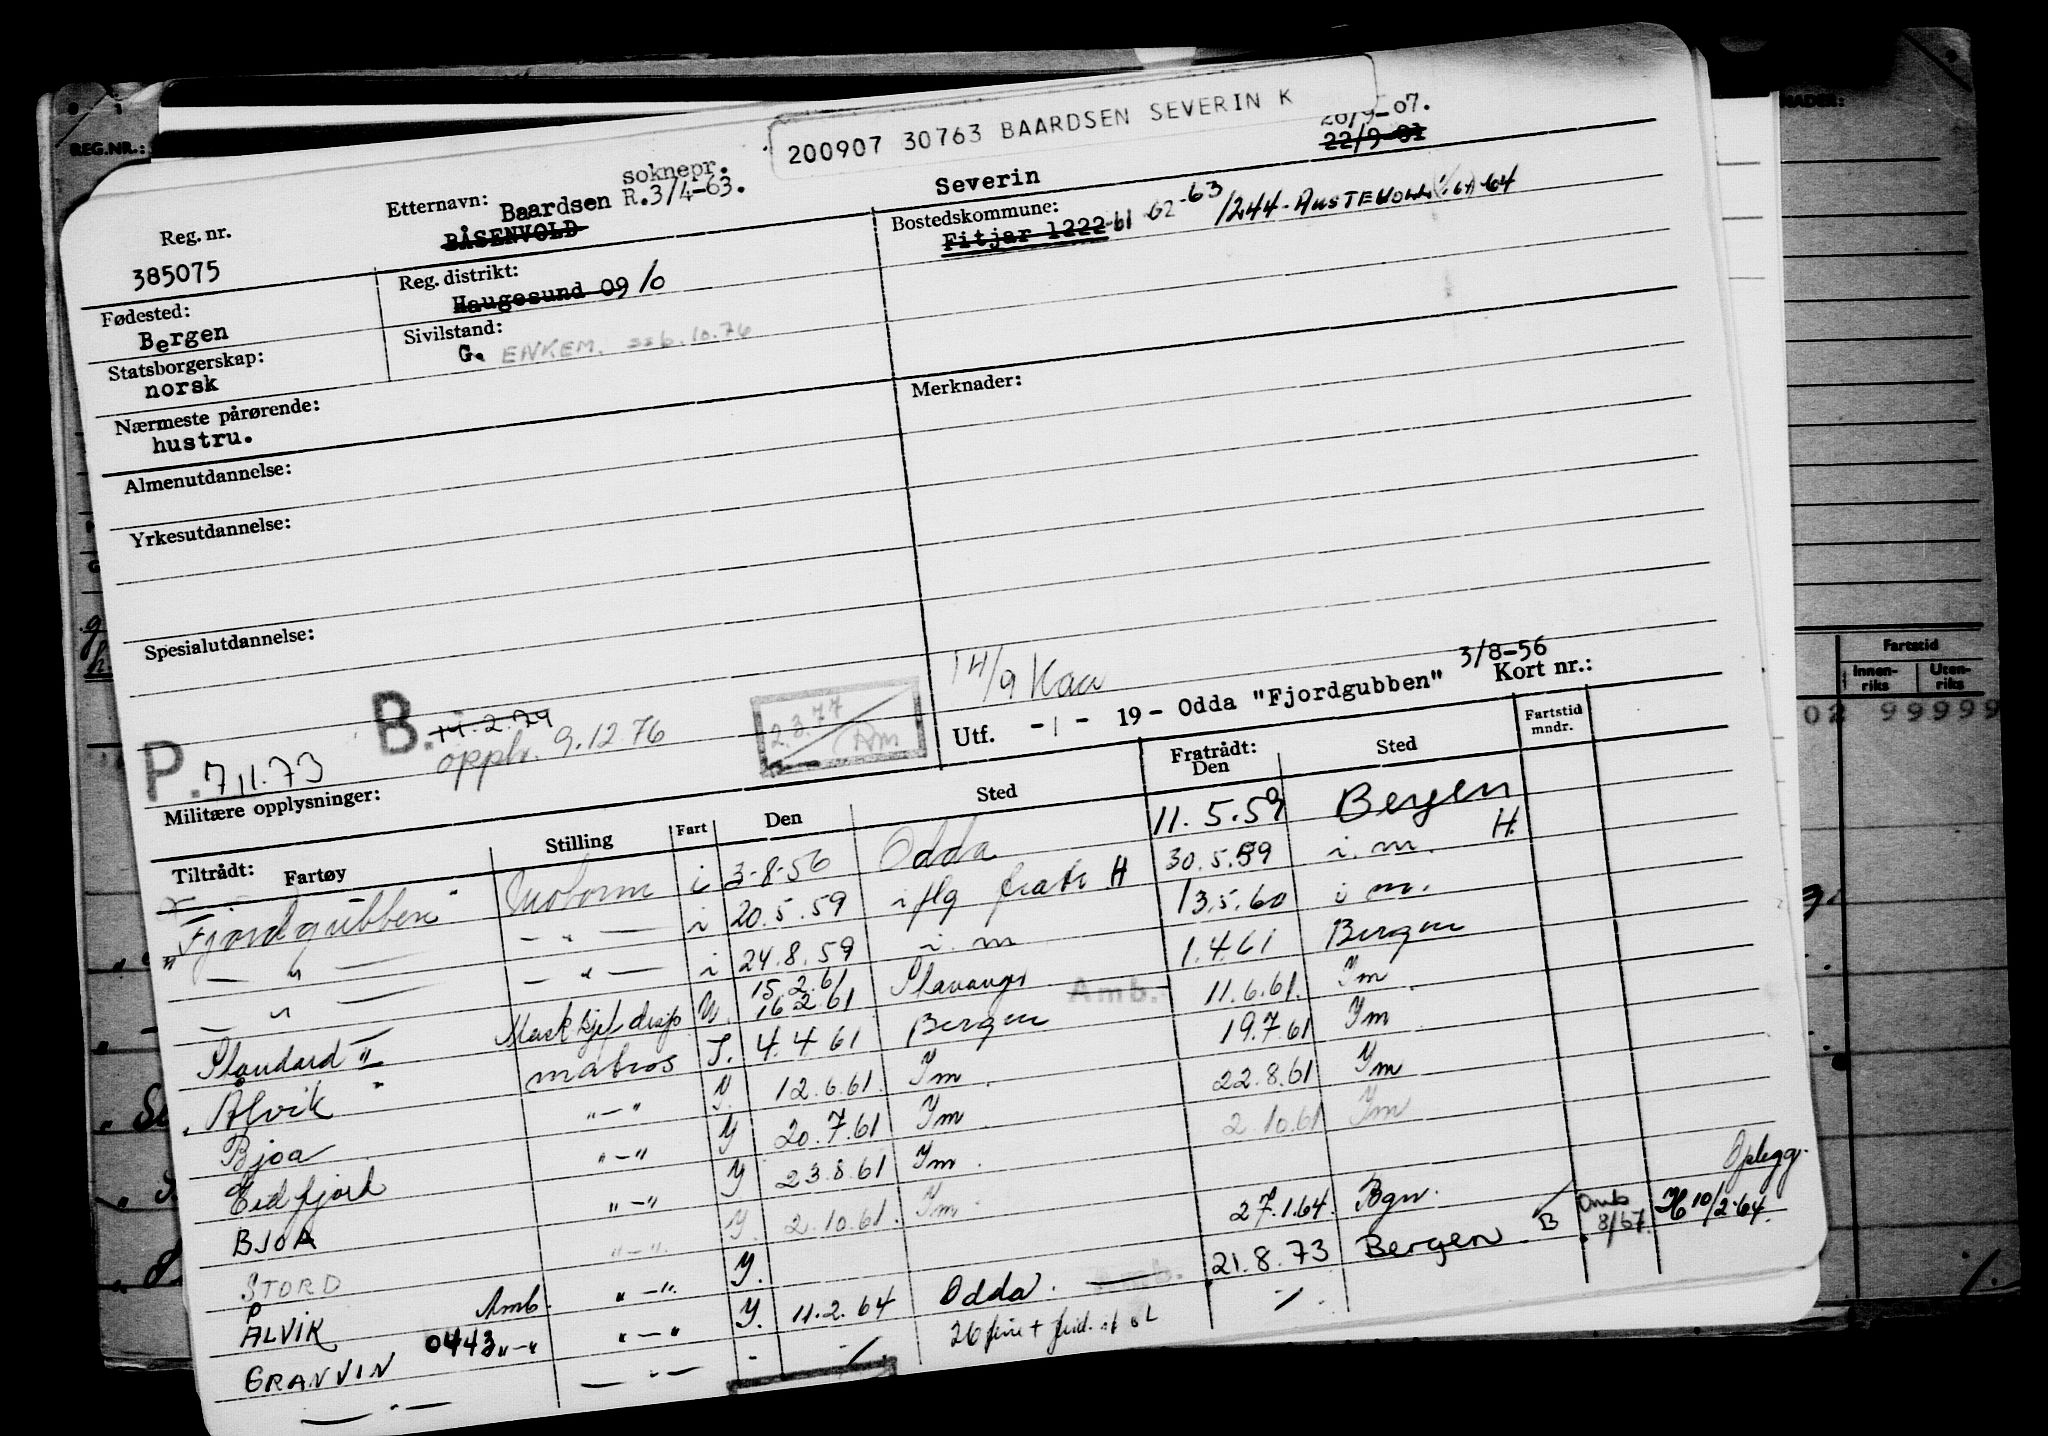 REG.NR.:
NADER:
200907 30763 BAARDSEN SEVERIN K
20/9-07.
22/9-01
soknepr.
Etternavn: Baardsen R.3/4-63.
BÅSENVOLD
Severin
Bostedskommune:
Fitjar 1222-61 62-63 /1244-AUSTEVOLL 64
Reg. nr.
385075
Reg. distrikt:
Haugesund 09 10
Fødested:
Bergen
Sivilstand:
G. ENKEM. 6.10.76
Statsborgerskap:
norsk
Nærmeste pårørende:
hustru.
Merknader:
Almenutdannelse:
Yrkesutdannelse:
Spesialutdannelse:
14/9 Kaa
P. 7.11.73
B. 14.2.74
opph. 9.12.76
2.3.77
Am
Utf. -1- 19- Odda "Fjordgubben" 3/8-56
Kort nr.:
Militære opplysninger:
Tiltrådt: Fartøy Stilling Fart Den Sted Fratrådt: Den Sted Fartstid mndr.
"Fjordgubben" Motorm i 3-8-56 Odda 11.5.59 Bergen
— " — — " — i 20.5.59 i flg fratr H 30.5.59 i.m. H.
— " — — " — i 24.8.59 i.m 13.5.60 i m.
15.2.61
Standard " Mask U. 16 2 61 Stavanger Amb. 1.4.61 Bergen
Ålvik " matros I. 4.4 61 Bergen 11.6.61. Im
Bjoa " — " Y. 12.6.61. Im 19.7.61 Im
Eidfjord " — " Y 20.7.61 Im 22.8.61 Im
BJOA " — " Y 23.8.61 Im 2.10.61 Im
STORD " — " Y. 2.10.61. Im
ÅLVIK Amb. " — " Y. 27.1.64. Bgn.
GRANVIN 0443 " — " " — " Y. 11.2.64 Odda. — Amb. 21.8.73 Bergen B Amb 8/67. H 10/2-64. Opplegg.
— " — — " — - ./. 26 ./.
Fartstid
Innen-riks
Uten-riks
02 99999